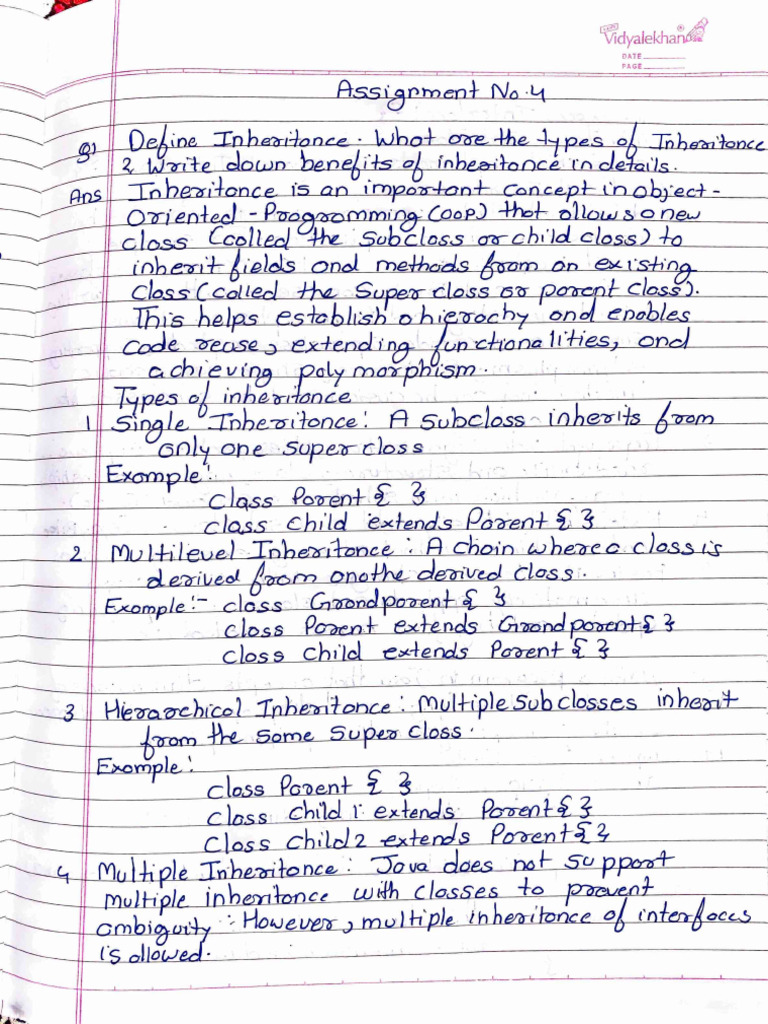 Vidyalekhan
DATE
PAGE
Assignment No. 4
Q1 Define Inheritance. What are the types of Inheritance
? Write down benefits of inheritance in details.
Ans Inheritance is an important concept in object-
Oriented - Programming (OOP) that allows a new
class (called the subclass or child class) to
inherit fields and methods from an existing
class (called the Super class or parent class).
This helps establish a hierachy and enables
code reuse, extending functionalities, and
achieving polymorphism.
Types of inheritance
1 Single Inheritance: A subclass inherits from
only one super class
Example:
class Parent { }
class Child extends Parent { }
2 Multilevel Inheritance : A chain where a class is
derived from anothe derived class.
Example:- class Grandparent { }
class Parent extends Grandparent { }
class Child extends Parent { }
3 Hierarchical Inheritance : Multiple subclasses inherit
from the same super class.
Example:
class Parent { }
class Child 1 extends Parent { }
class Child 2 extends Parent { }
4 Multiple Inheritance : Java does not support
multiple inheritance with classes to prevent
ambiguity : However, multiple inheritance of interfaces
is allowed.